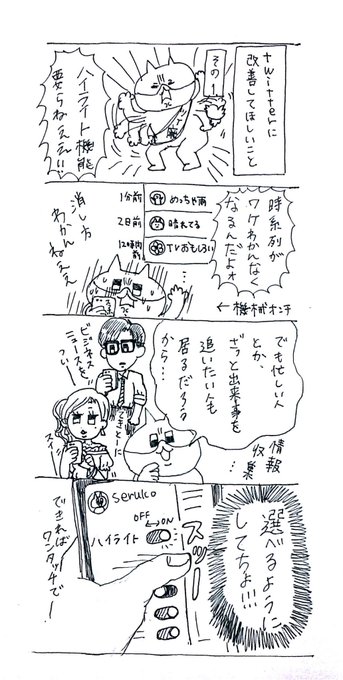 twitterに
改善してほしいこと
その1
ハイライト機能
要らねええい
時系列が
ワケわかんなく
なるんだよォ
1分前 めっちゃ雨
2日前 晴れてる
12時間前 TVおもしろい
消し方
わかんねええ
←機械オンチ
でも忙しい人
とか、
ざっと出来事を
追いたい人も
居るだろう
から…
情報
収集…
ビジネス
ニュースを、
つい
てきとーに
スイ
選べるように
してちょ!!!
seruko
OFF ↔ ON
ハイライト
スッ
できれば
ワンタッチでー